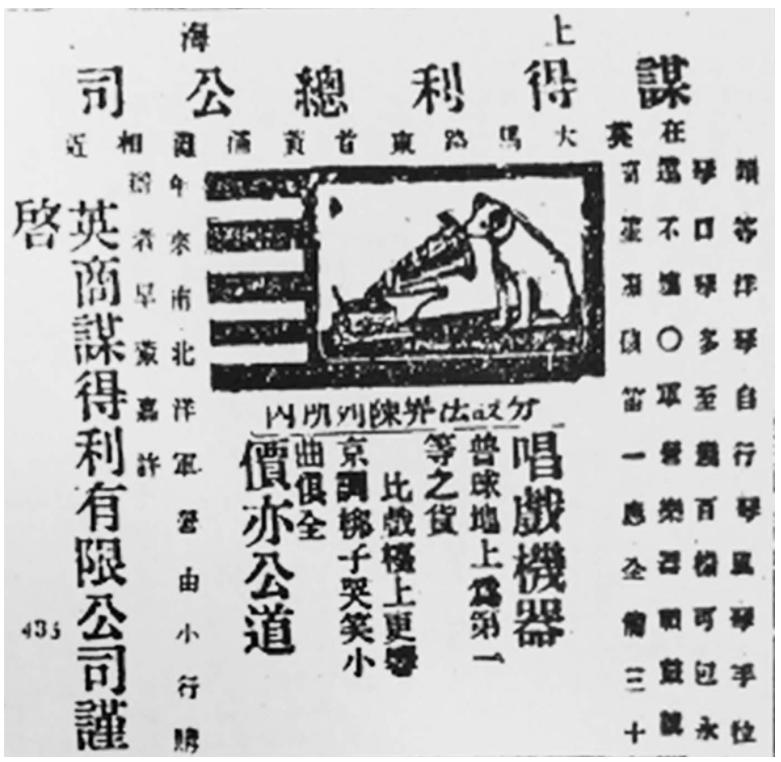 上海
謀得利總公司
在英大馬路東首黃浦灘相近
頭等洋琴自行琴風琴手拉
琴口琴多至幾百樣可包永
遠不壞〇軍營樂器戰鼓號
一應全備三十
年來南北洋軍營由小行購
辦者早蒙嘉許
分設法界陳列所內
唱戲機器
普球地上爲第一
等之貨
比戲檯上更響
京調梆子哭笑小
曲俱全
價亦公道
英商謀得利有限公司謹
啓
435